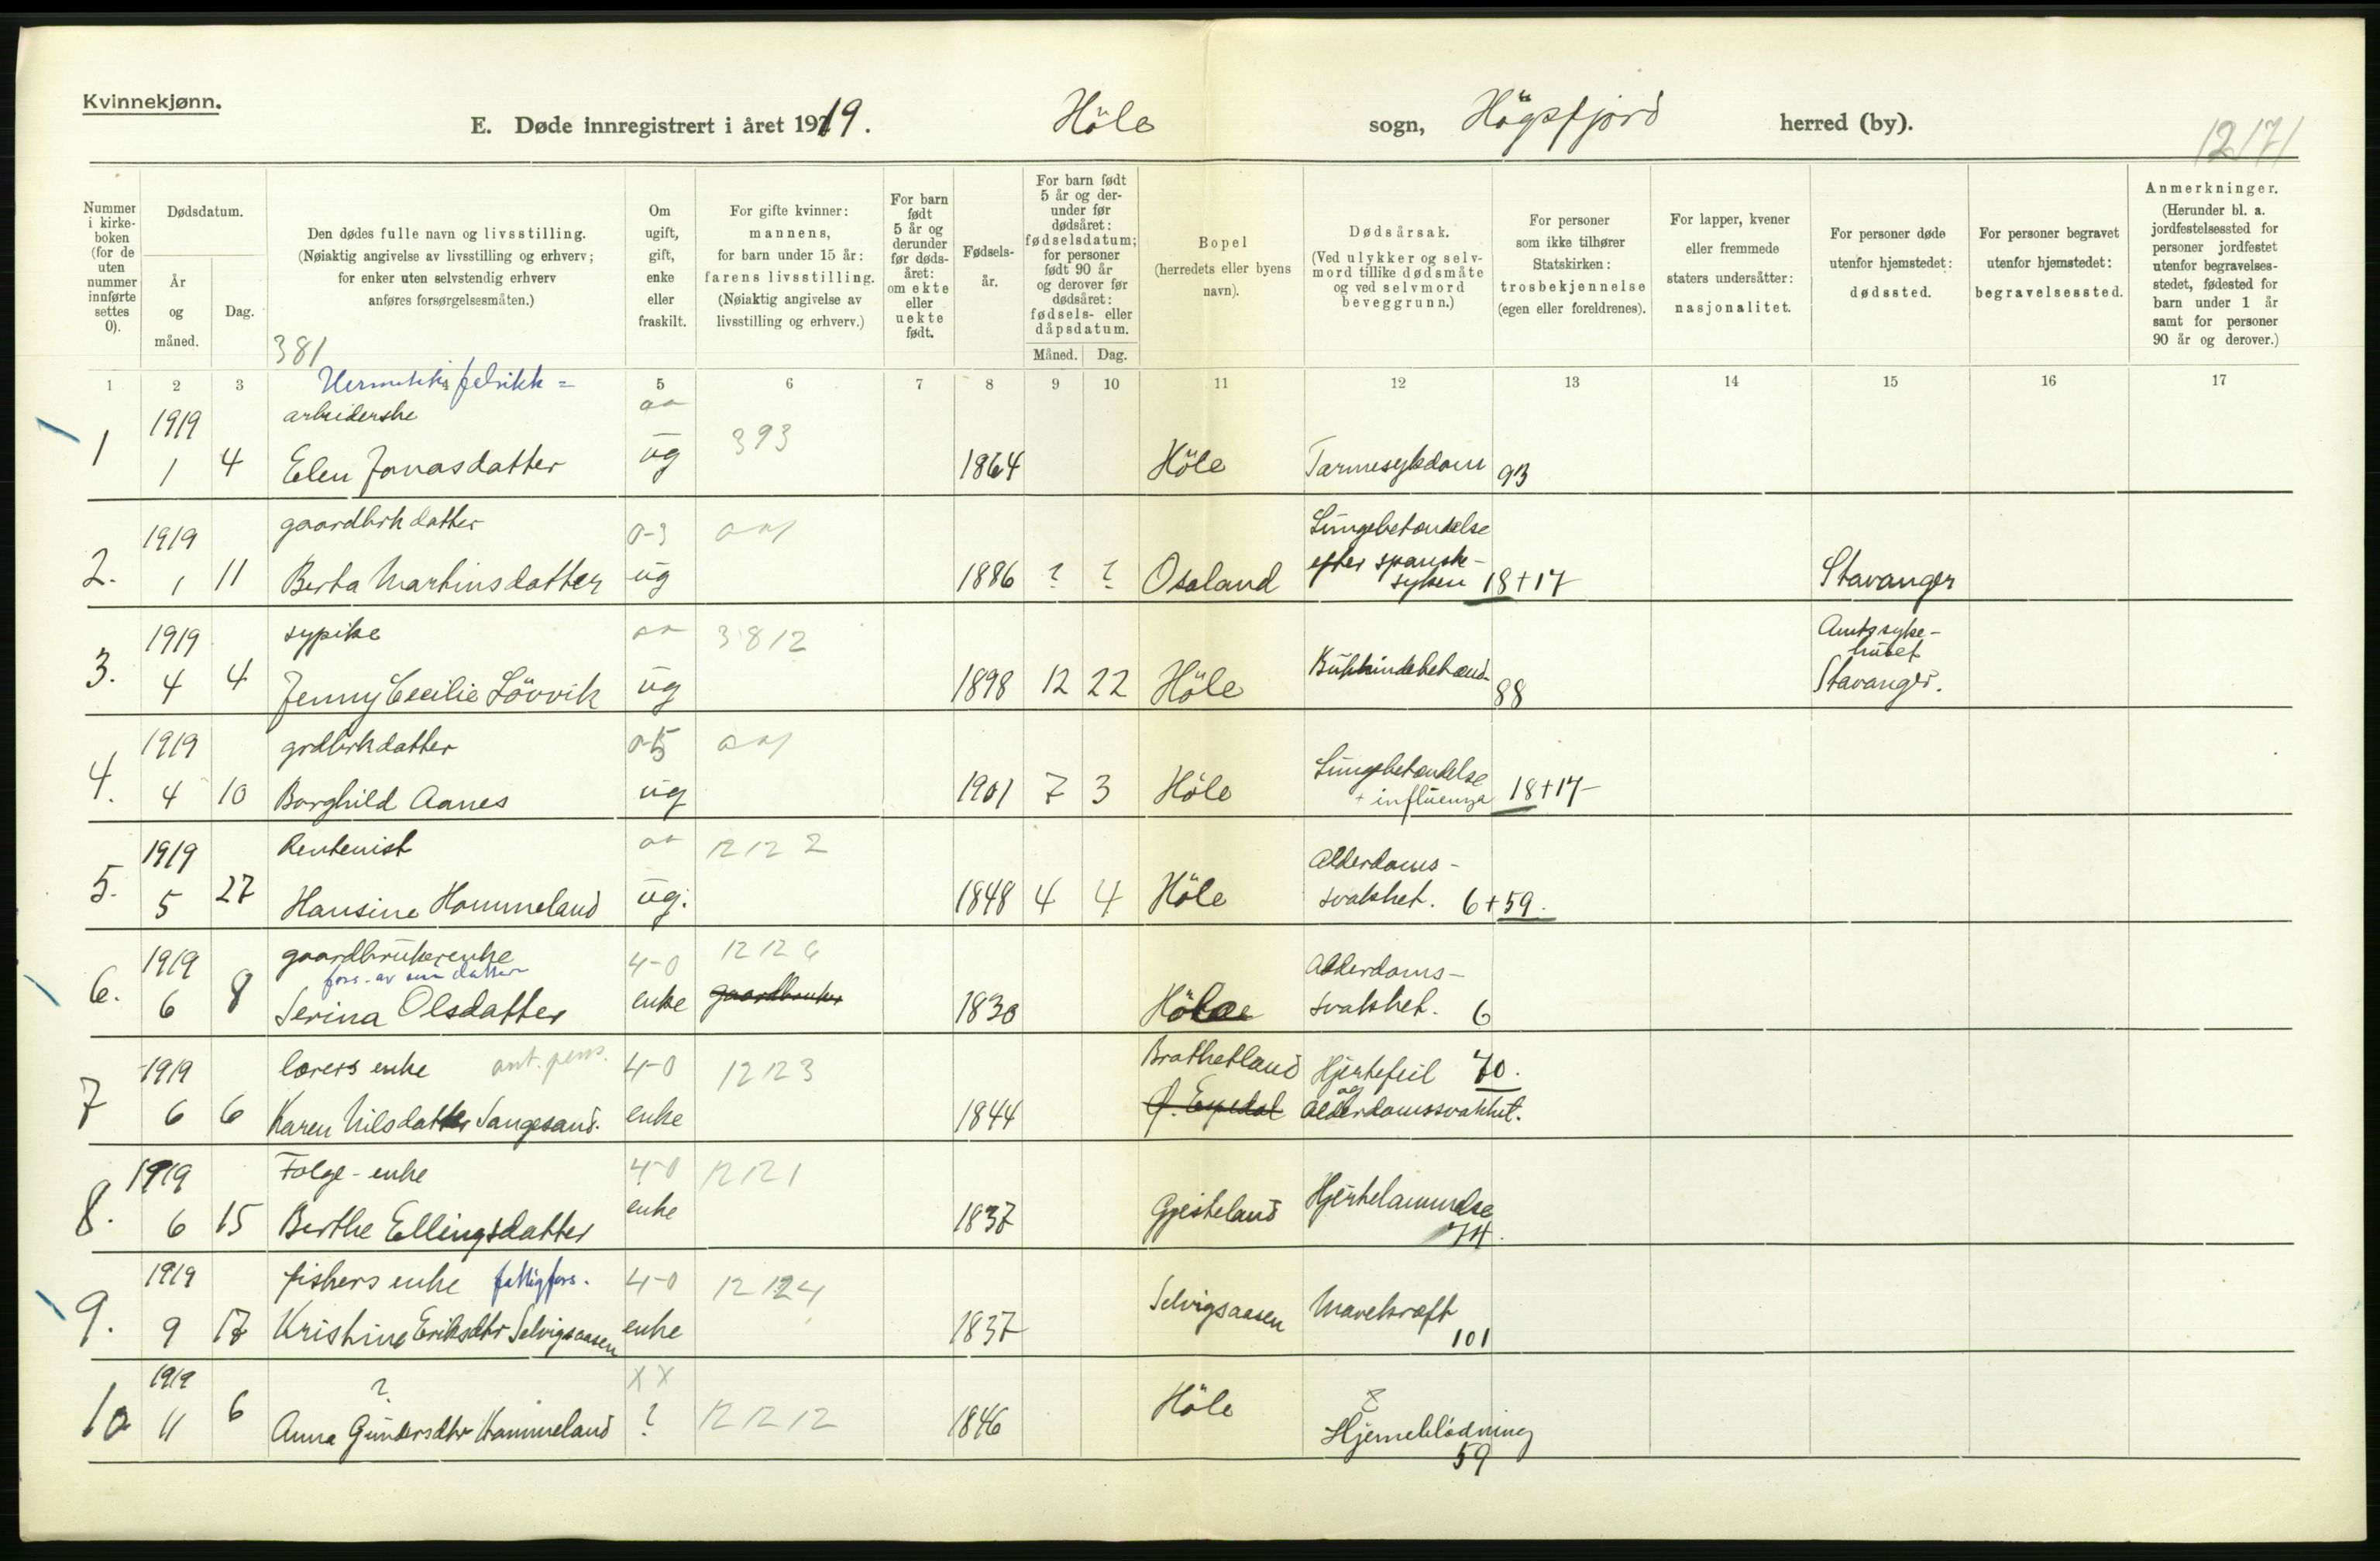 Kvinnekjønn.
E. Døde innregistrert i året 1919. Höle sogn, Högsfjord herred (by).
12171
Nummer i kirke-boken (for de uten nummer innførte settes 0).
Dødsdatum.
År og måned.
Dag.
Den dødes fulle navn og livsstilling.
(Nøiaktig angivelse av livsstilling og erhverv;
for enker uten selvstendig erhverv
anføres forsørgelsesmåten.)
Om ugift, gift, enke eller fraskilt.
For gifte kvinner:
mannens,
for barn under 15 år:
farens livsstilling.
(Nøiaktig angivelse av
livsstilling og erhverv.)
For barn født 5 år og derunder før døds-året: om ekte eller uekte født.
Fødsels-år.
For barn født 5 år og der-under før dødsåret: fødselsdatum; for personer født 90 år og derover før dødsåret: fødsels- eller dåpsdatum.
Måned. Dag.
Bopel
(herredets eller byens
navn).
Dødsårsak.
(Ved ulykker og selv-
mord tillike dødsmåte
og ved selvmord
beveggrunn.)
For personer
som ikke tilhører
Statskirken:
trosbekjennelse
(egen eller foreldrenes).
For lapper, kvener
eller fremmede
staters undersåtter:
nasjonalitet.
For personer døde
utenfor hjemstedet:
dødssted.
For personer begravet
utenfor hjemstedet:
begravelsessted.
Anmerkninger.
(Herunder bl. a.
jordfestelsessted for
personer jordfestet
utenfor begravelses-
stedet, fødested for
barn under 1 år
samt for personer
90 år og derover.)
381
1 2 3 5 6 7 8 9 10 11 12 13 14 15 16 17
Hermetikkfabrikk=
1919 arbeiderske
1 1 4 Elen Jonasdatter ug 393 1864 Höle Tarmesykdom 93
1919 gaardbrk datter Lungebetændelse
efter spanske-
2. 1 11 Berta Martinsdatter ug 1886 ? ? Osaland syken 18+17 Stavanger
1919 sypike 3812 Amtssyke-
huset
3. 4 4 Jenny Cecilie Lövvik ug 1898 12 22 Höle Bukhindebetænd. 88 Stavanger.
1919 grdbrkdatter Lungebetændelse
4. 4 10 Borghild Aanes ug 1901 7 3 Höle + influenza 18+17
1919 Rentenist 12122 Alderdoms-
5. 5 27 Hansine Hommeland ug. 1848 4 4 Höle svakhet. 6+59.
1919 gaardbrukerenke 4-0 12126 Alderdoms-
fors. av sin datter
6. 6 8 Serina Olsdatter enke gaardbruker 1830 Höle svakhet. 6
1919 lærers enke ant. pens. 4-0 12123 Brathetland Hjertefeil 70.
og
7 6 6 Karen Nilsdatter Sangesand. enke 1844 f. Espedal Alderdomssvakhet.
1919 Folge-enke 4-0 12121
8. 6 15 Berthe Ellingsdatter enke 1837 Gjesteland Hjertelammelse
74.
1919 fiskers enke fattigfors. 4-0 12124
9. 9 17 Kristine Eriksdtr Selvigsaasen enke 1837 Selvigsaasen Mavekræft
101
1919 ? X X
10 11 6 Anna Gundersdtr Hommeland ? 121212 1846 Höle Hjerneblödning
59